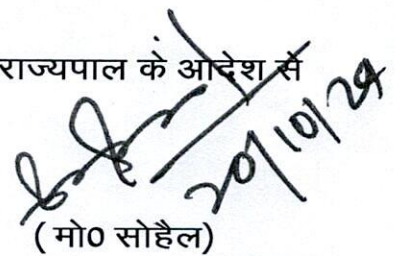 राज्यपाल के आदेश से
20/10/24
( मो0 सोहैल)